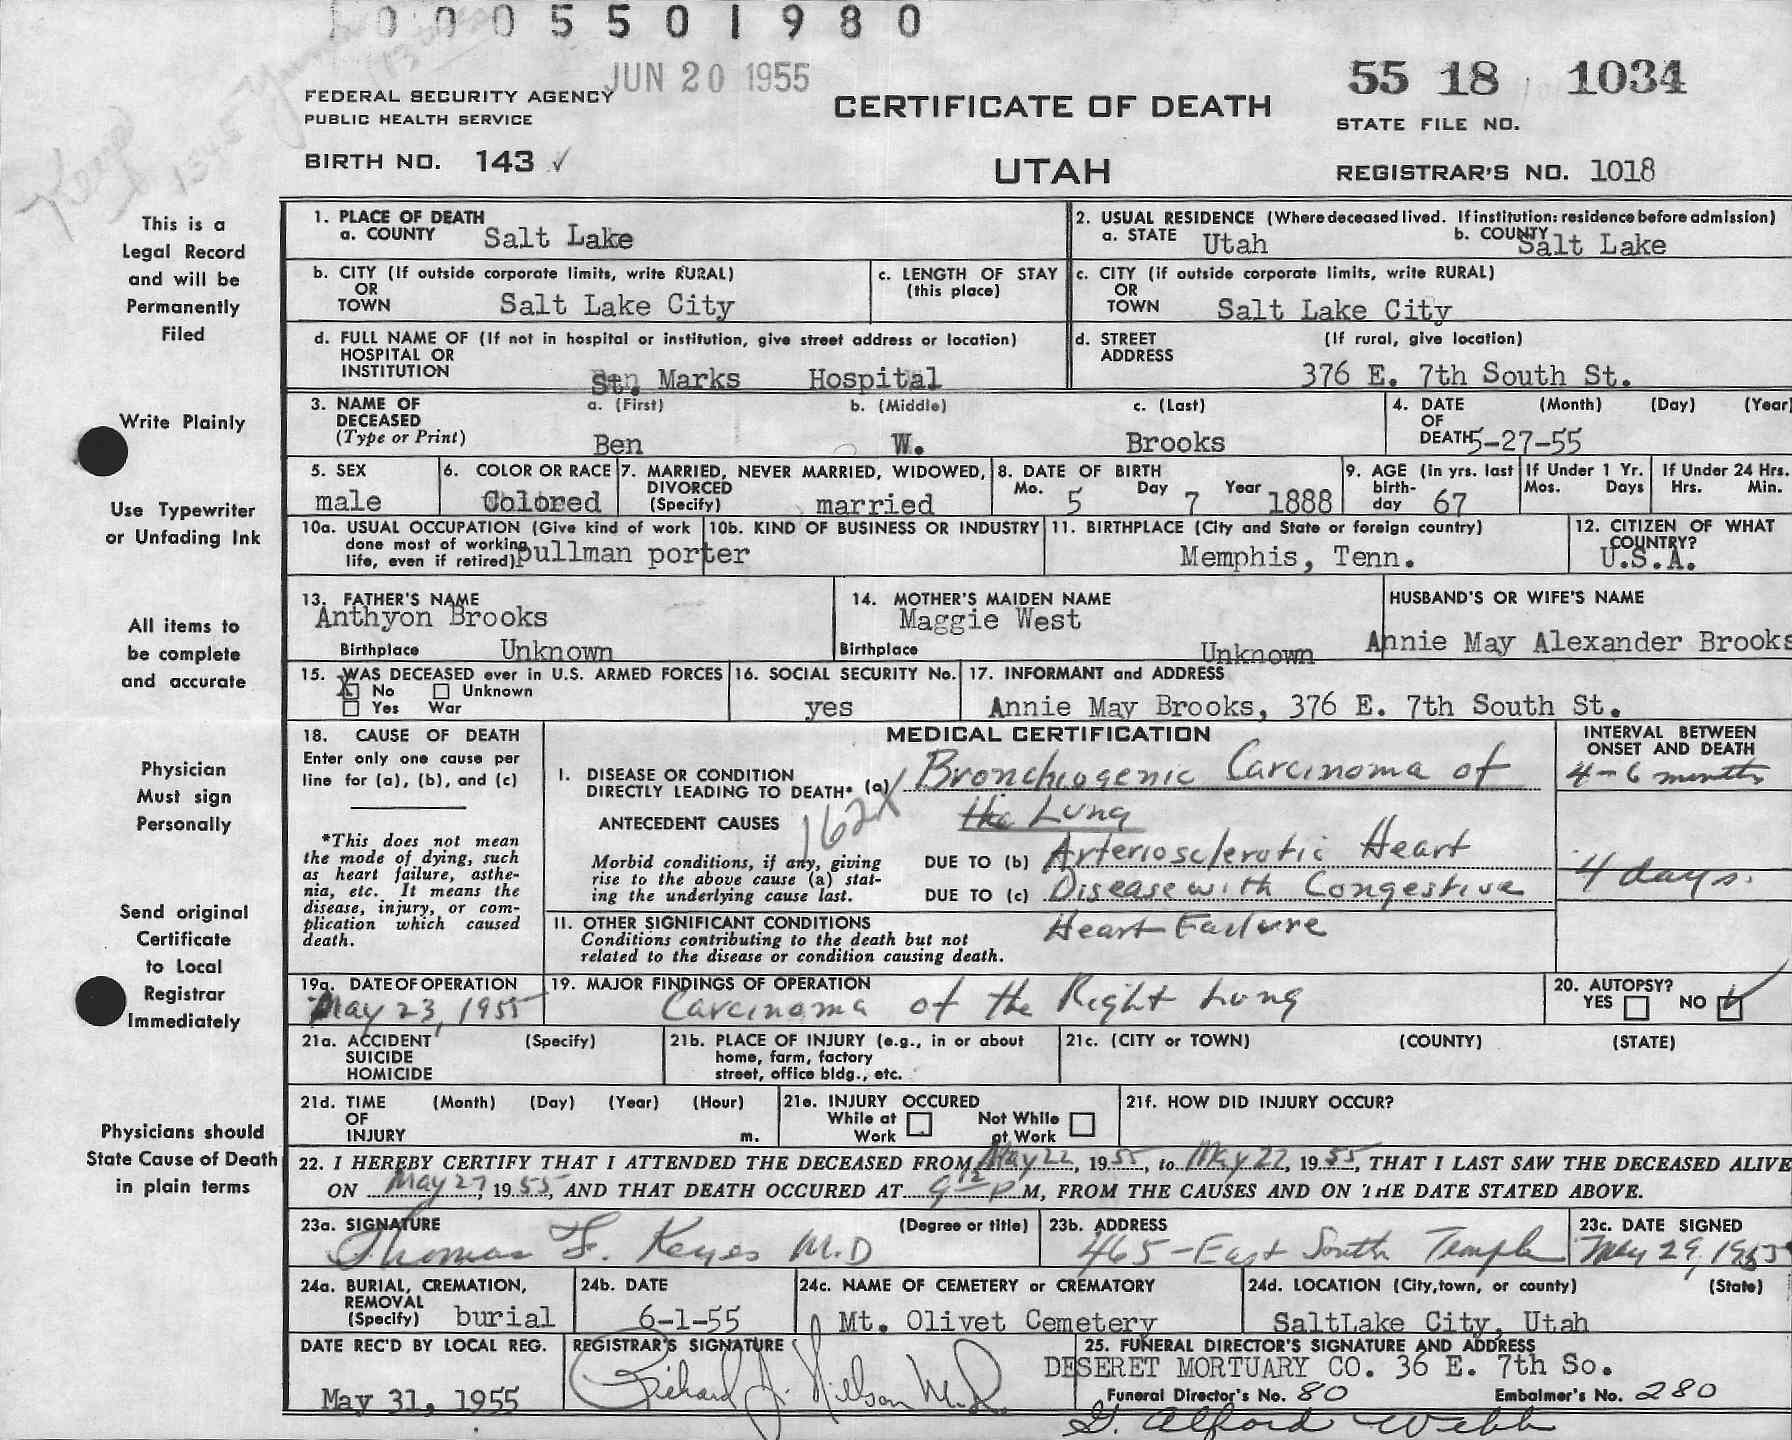 0005501980
JUN 20 1955
55 18 1034
FEDERAL SECURITY AGENCY
PUBLIC HEALTH SERVICE
CERTIFICATE OF DEATH
STATE FILE NO.
BIRTH NO. 143 ✓
UTAH
REGISTRAR'S NO. 1018
This is a
Legal Record
and will be
Permanently
Filed
Write Plainly
Use Typewriter
or Unfading Ink
All items to
be complete
and accurate
Physician
Must sign
Personally
Send original
Certificate
to Local
Registrar
Immediately
Physicians should
State Cause of Death
in plain terms
1. PLACE OF DEATH
a. COUNTY Salt Lake
2. USUAL RESIDENCE (Where deceased lived. If institution: residence before admission)
a. STATE Utah b. COUNTY Salt Lake
b. CITY (If outside corporate limits, write RURAL)
OR
TOWN Salt Lake City
c. LENGTH OF STAY
(this place)
c. CITY (if outside corporate limits, write RURAL)
OR
TOWN Salt Lake City
d. FULL NAME OF (If not in hospital or institution, give street address or location)
HOSPITAL OR
INSTITUTION St. Marks Hospital
d. STREET (If rural, give location)
ADDRESS
376 E. 7th South St.
3. NAME OF a. (First) b. (Middle) c. (Last)
DECEASED
(Type or Print) Ben W. Brooks
4. DATE (Month) (Day) (Year)
OF
DEATH 5-27-55
5. SEX
male
6. COLOR OR RACE
Colored
7. MARRIED, NEVER MARRIED, WIDOWED,
DIVORCED
(Specify) married
8. DATE OF BIRTH
Mo. 5 Day 7 Year 1888
9. AGE (in yrs. last
birth-
day 67
If Under 1 Yr.
Mos. Days
If Under 24 Hrs.
Hrs. Min.
10a. USUAL OCCUPATION (Give kind of work
done most of working
life, even if retired) pullman porter
10b. KIND OF BUSINESS OR INDUSTRY
11. BIRTHPLACE (City and State or foreign country)
Memphis, Tenn.
12. CITIZEN OF WHAT
COUNTRY?
U.S.A.
13. FATHER'S NAME
Anthyon Brooks
Birthplace Unknown
14. MOTHER'S MAIDEN NAME
Maggie West
Birthplace Unknown
HUSBAND'S OR WIFE'S NAME
Annie May Alexander Brooks
15. WAS DECEASED ever in U.S. ARMED FORCES
No Unknown
Yes War
16. SOCIAL SECURITY No.
yes
17. INFORMANT and ADDRESS
Annie May Brooks, 376 E. 7th South St.
18. CAUSE OF DEATH
Enter only one cause per
line for (a), (b), and (c)
*This does not mean
the mode of dying, such
as heart failure, asthe-
nia, etc. It means the
disease, injury, or com-
plication which caused
death.
MEDICAL CERTIFICATION
INTERVAL BETWEEN
ONSET AND DEATH
I. DISEASE OR CONDITION
DIRECTLY LEADING TO DEATH* (a) Bronchiogenic Carcinoma of
4-6 months
ANTECEDENT CAUSES 162x the Lung
Morbid conditions, if any, giving
rise to the above cause (a) stat-
ing the underlying cause last.
DUE TO (b) Arteriosclerotic Heart
DUE TO (c) Disease with Congestive
4 days.
II. OTHER SIGNIFICANT CONDITIONS Heart Failure
Conditions contributing to the death but not
related to the disease or condition causing death.
19a. DATE OF OPERATION
May 23, 1955
19. MAJOR FINDINGS OF OPERATION
Carcinoma of the Right Lung
20. AUTOPSY?
YES NO
21a. ACCIDENT (Specify)
SUICIDE
HOMICIDE
21b. PLACE OF INJURY (e.g., in or about
home, farm, factory
street, office bldg., etc.
21c. (CITY or TOWN) (COUNTY) (STATE)
21d. TIME (Month) (Day) (Year) (Hour)
OF
INJURY m.
21e. INJURY OCCURED
While at Not While
Work at Work
21f. HOW DID INJURY OCCUR?
22. I HEREBY CERTIFY THAT I ATTENDED THE DECEASED FROM May 22, 1955, to May 27, 1955, THAT I LAST SAW THE DECEASED ALIVE
ON May 27, 1955, AND THAT DEATH OCCURED AT 9 12 P M, FROM THE CAUSES AND ON THE DATE STATED ABOVE.
23a. SIGNATURE (Degree or title)
Thomas F. Keyes M.D
23b. ADDRESS
465-East South Temple
23c. DATE SIGNED
May 29, 1955
24a. BURIAL, CREMATION,
REMOVAL
(Specify) burial
24b. DATE
6-1-55
24c. NAME OF CEMETERY or CREMATORY
Mt. Olivet Cemetery
24d. LOCATION (City, town, or county) (State)
SaltLake City, Utah
DATE REC'D BY LOCAL REG.
May 31, 1955
REGISTRAR'S SIGNATURE
Richard J. Nilson M.D.
25. FUNERAL DIRECTOR'S SIGNATURE AND ADDRESS
DESERET MORTUARY CO. 36 E. 7th So.
Funeral Director's No. 80 Embalmer's No. 280
G. Alford Webb